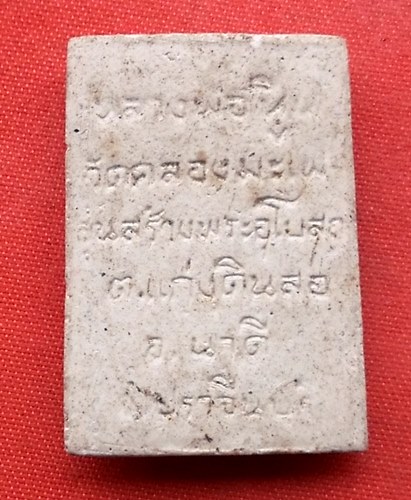 หลวงพ่อ
วัดคลองมะไฟ
รุ่นสร้างพระอุโบสถ
ต.แก่งดินสอ
อ.นาดี
จ.ปราจีนบุรี